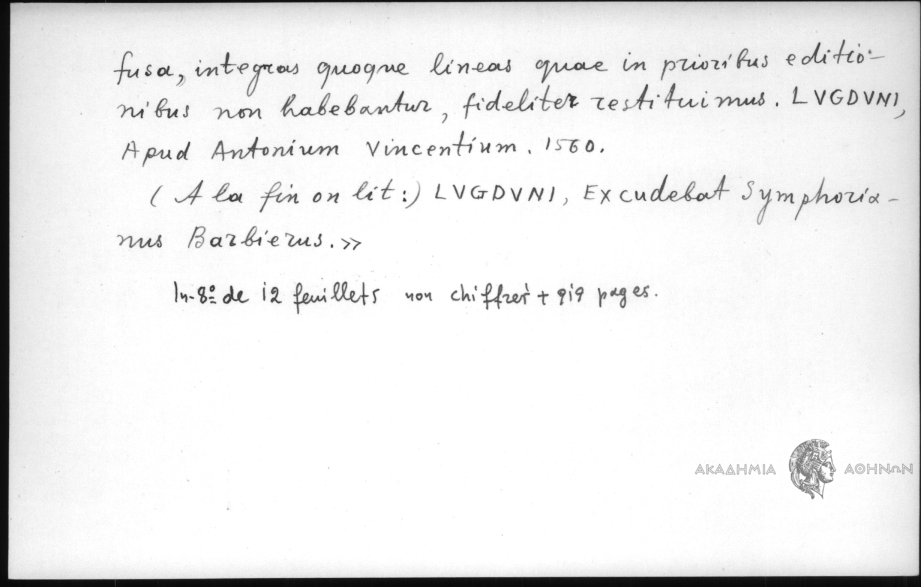 fusa, integras quoque lineas quae in prioribus editio-
nibus non habebantur, fideliter restituimus. LVGDVNI,
Apud Antonium Vincentium. 1560.
(A la fin on lit:) LVGDVNI, Excudebat Symphoria-
nus Barbierus.»
In-8º de 12 feuillets non chiffrés + 919 pages.
ΑΚΑΔΗΜΙΑ ΑΘΗΝΩΝ